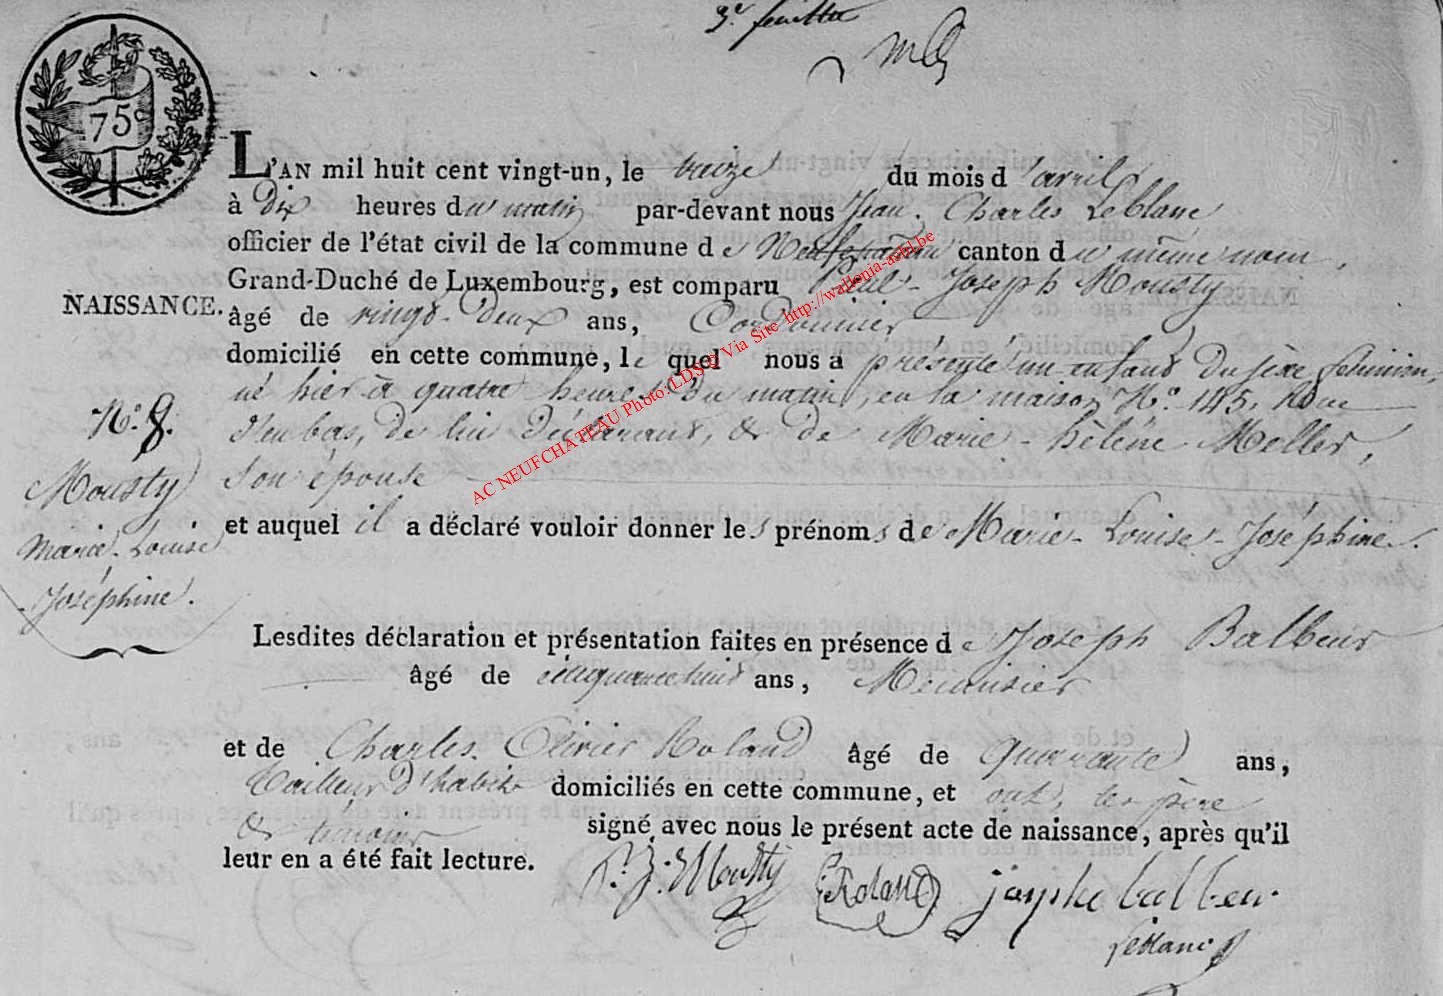 3e. feuillet
75c
L'AN mil huit cent vingt-un, le treize du mois d'avril
à dix heures du matin par-devant nous Jean-Charles Leblanc
officier de l'état civil de la commune de Neufchateau canton du même nom,
Grand-Duché de Luxembourg, est comparu Paul-Joseph Mousty
NAISSANCE.
âgé de vingt-deux ans, Cordonnier
domicilié en cette commune, lequel nous a présenté un enfant du sexe féminin,
né hier à quatre heures du matin, en la maison No. 145, Rue
No. 8.
d'en bas, de lui Déclarant, & de Marie-hélène Meller,
Mousty
son épouse
Marie-Louise
Joséphine.
et auquel il a déclaré vouloir donner les prénoms de Marie-Louise-Joséphine.
Lesdites déclaration et présentation faites en présence de Joseph Balbeur
âgé de cinquante huit ans, Menuisier
et de Charles Olivier Roland âgé de quarante ans,
Tailleur d'habits domiciliés en cette commune, et ont, les père
& témoins signé avec nous le présent acte de naissance, après qu'il
leur en a été fait lecture.
P. J. Mousty Roland joseph balbeur
Leblanc
AC NEUFCHATEAU Photo: LDS © Via Site http://wallonia-asbl.be